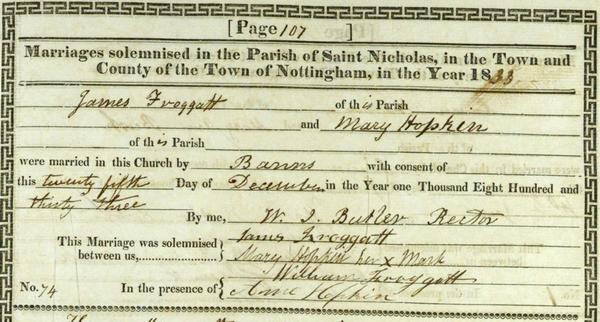 [Page 107]
Marriages solemnised in the Parish of Saint Nicholas, in the Town and
County of the Town of Nottingham, in the Year 1833
James Froggatt of this Parish
and Mary Hopkin
of this Parish
were married in this Church by Banns with consent of
this twenty fifth Day of December in the Year one Thousand Eight Hundred and
thirty three
By me, W. J. Butler Rector
This Marriage was solemnised between us, James Froggatt
Mary Hopkin her x Mark
In the presence of William Froggatt
No. 74 Anne Hopkin